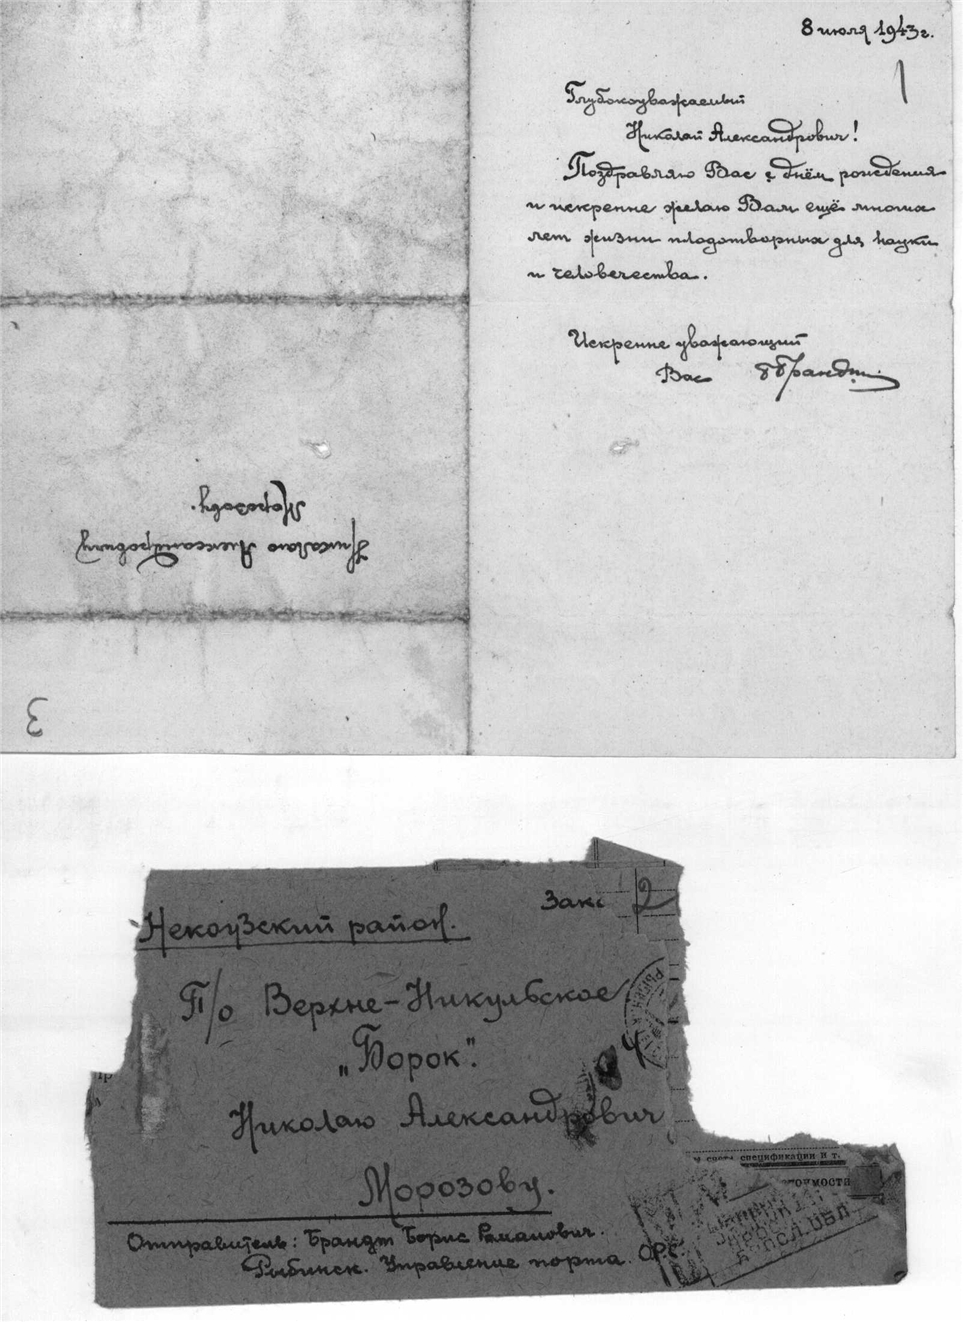 8 июля 1943г.
1
Глубокоуважаемый
Николай Александрович!
Поздравляю Вас с днём рождения
и искренне желаю Вам ещё многих
лет жизни плодотворных для науки
и человечества.
Искренне уважающий
Вас ББрандт
Николаю Александровичу
Морозову.
3
Зака 2
Некоузский район.
П/о Верхне-Никульское
„Борок".
Николаю Александрович
Морозову.
Отправитель: Брандт Борис Романович.
Рыбинск. Управление порта. ОРС
спецификации и т.